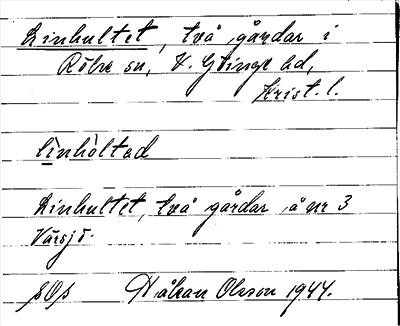 Linhultet, två gårdar i
Röke sn, V. Göinge hd,
Krist. l.
lìnhòltad
Linhultet, två gårdar å nr 3
Värsjö.
SOS Håkan Olsson 1944.